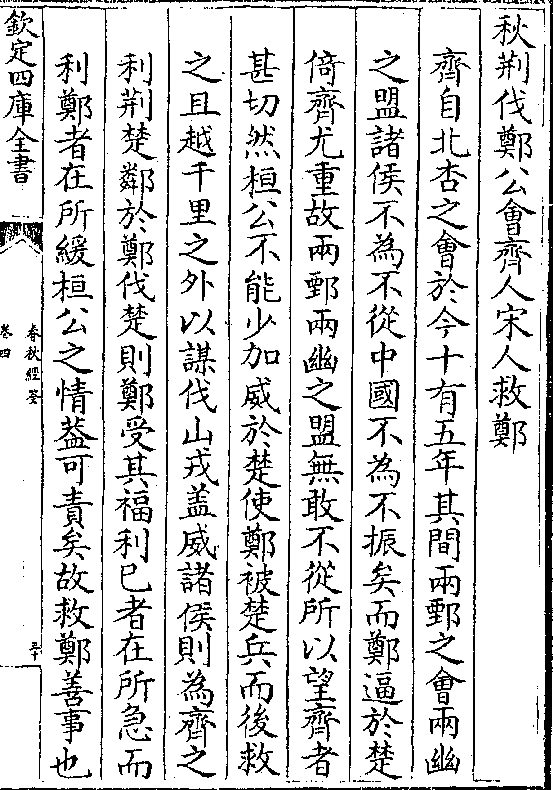 秋荆伐鄭公會齊人宋人救鄭
齊自北杏之會於今十有五年其間兩鄄之會兩幽
之盟諸侯不為不從中國不為不振矣而鄭逼於楚
倚齊尤重故兩鄄兩幽之盟無敢不從所以望齊者
甚切然桓公不能少加威於楚使鄭被楚兵而後救
之且越千里之外以謀伐山戎盖威諸侯則為齊之
利荆楚鄰於鄭伐楚則鄭受其福利已者在所急而
利鄭者在所緩桓公之情葢可責矣故救鄭善事也
欽定四庫全書
春秋經筌
卷四